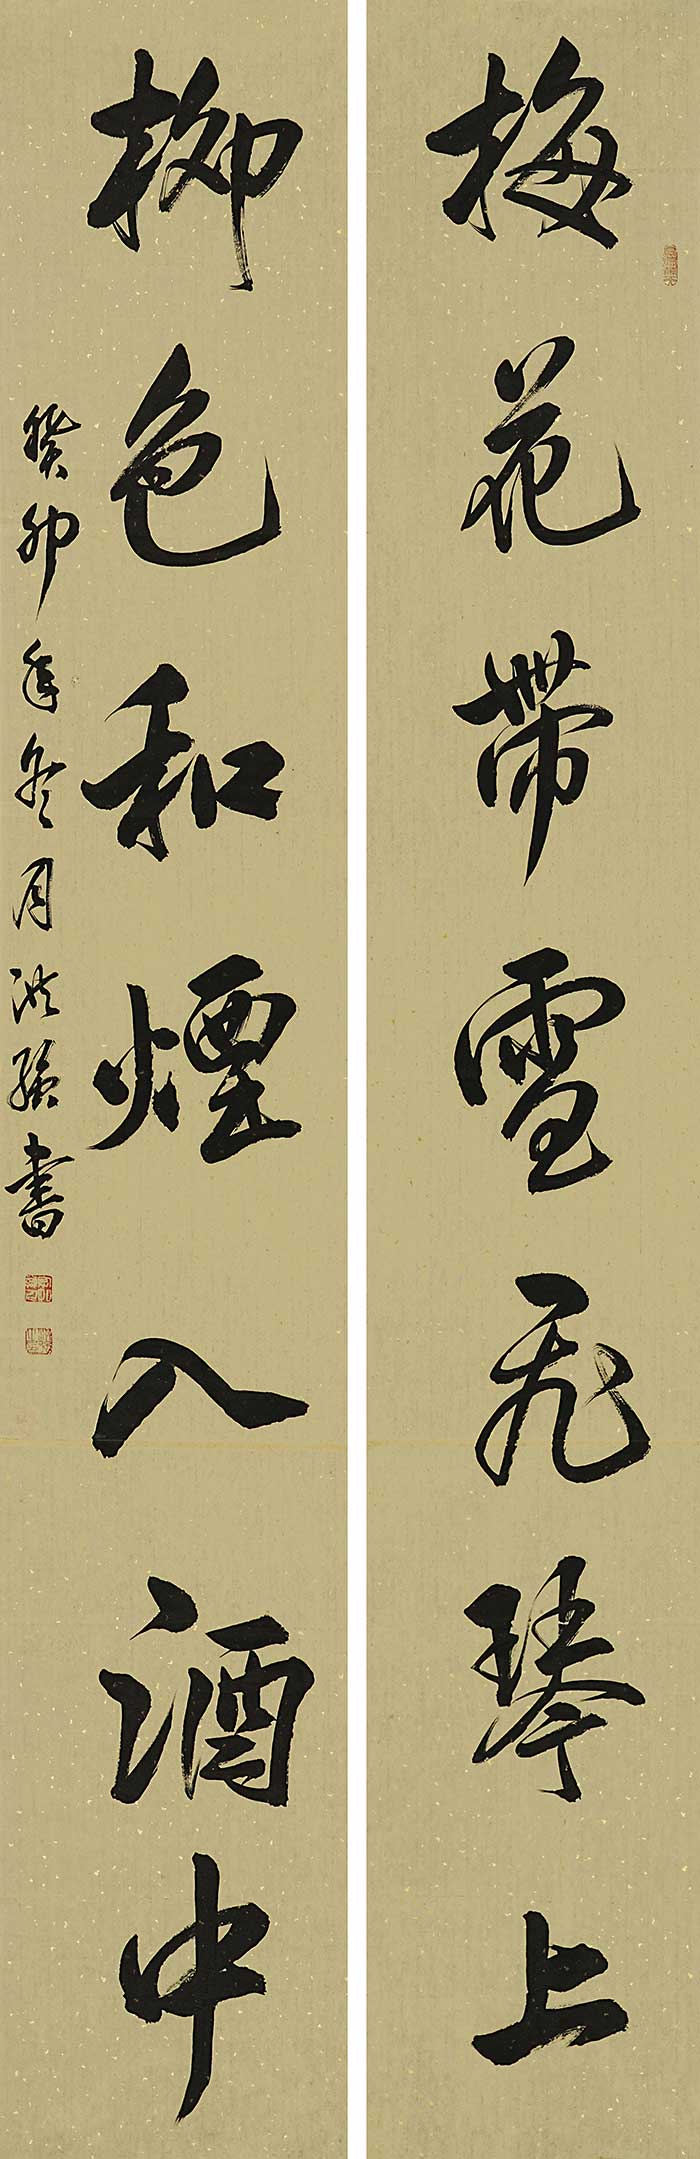 梅花帶雪飛琴上
柳色和煙入酒中
癸卯年冬月洪強書